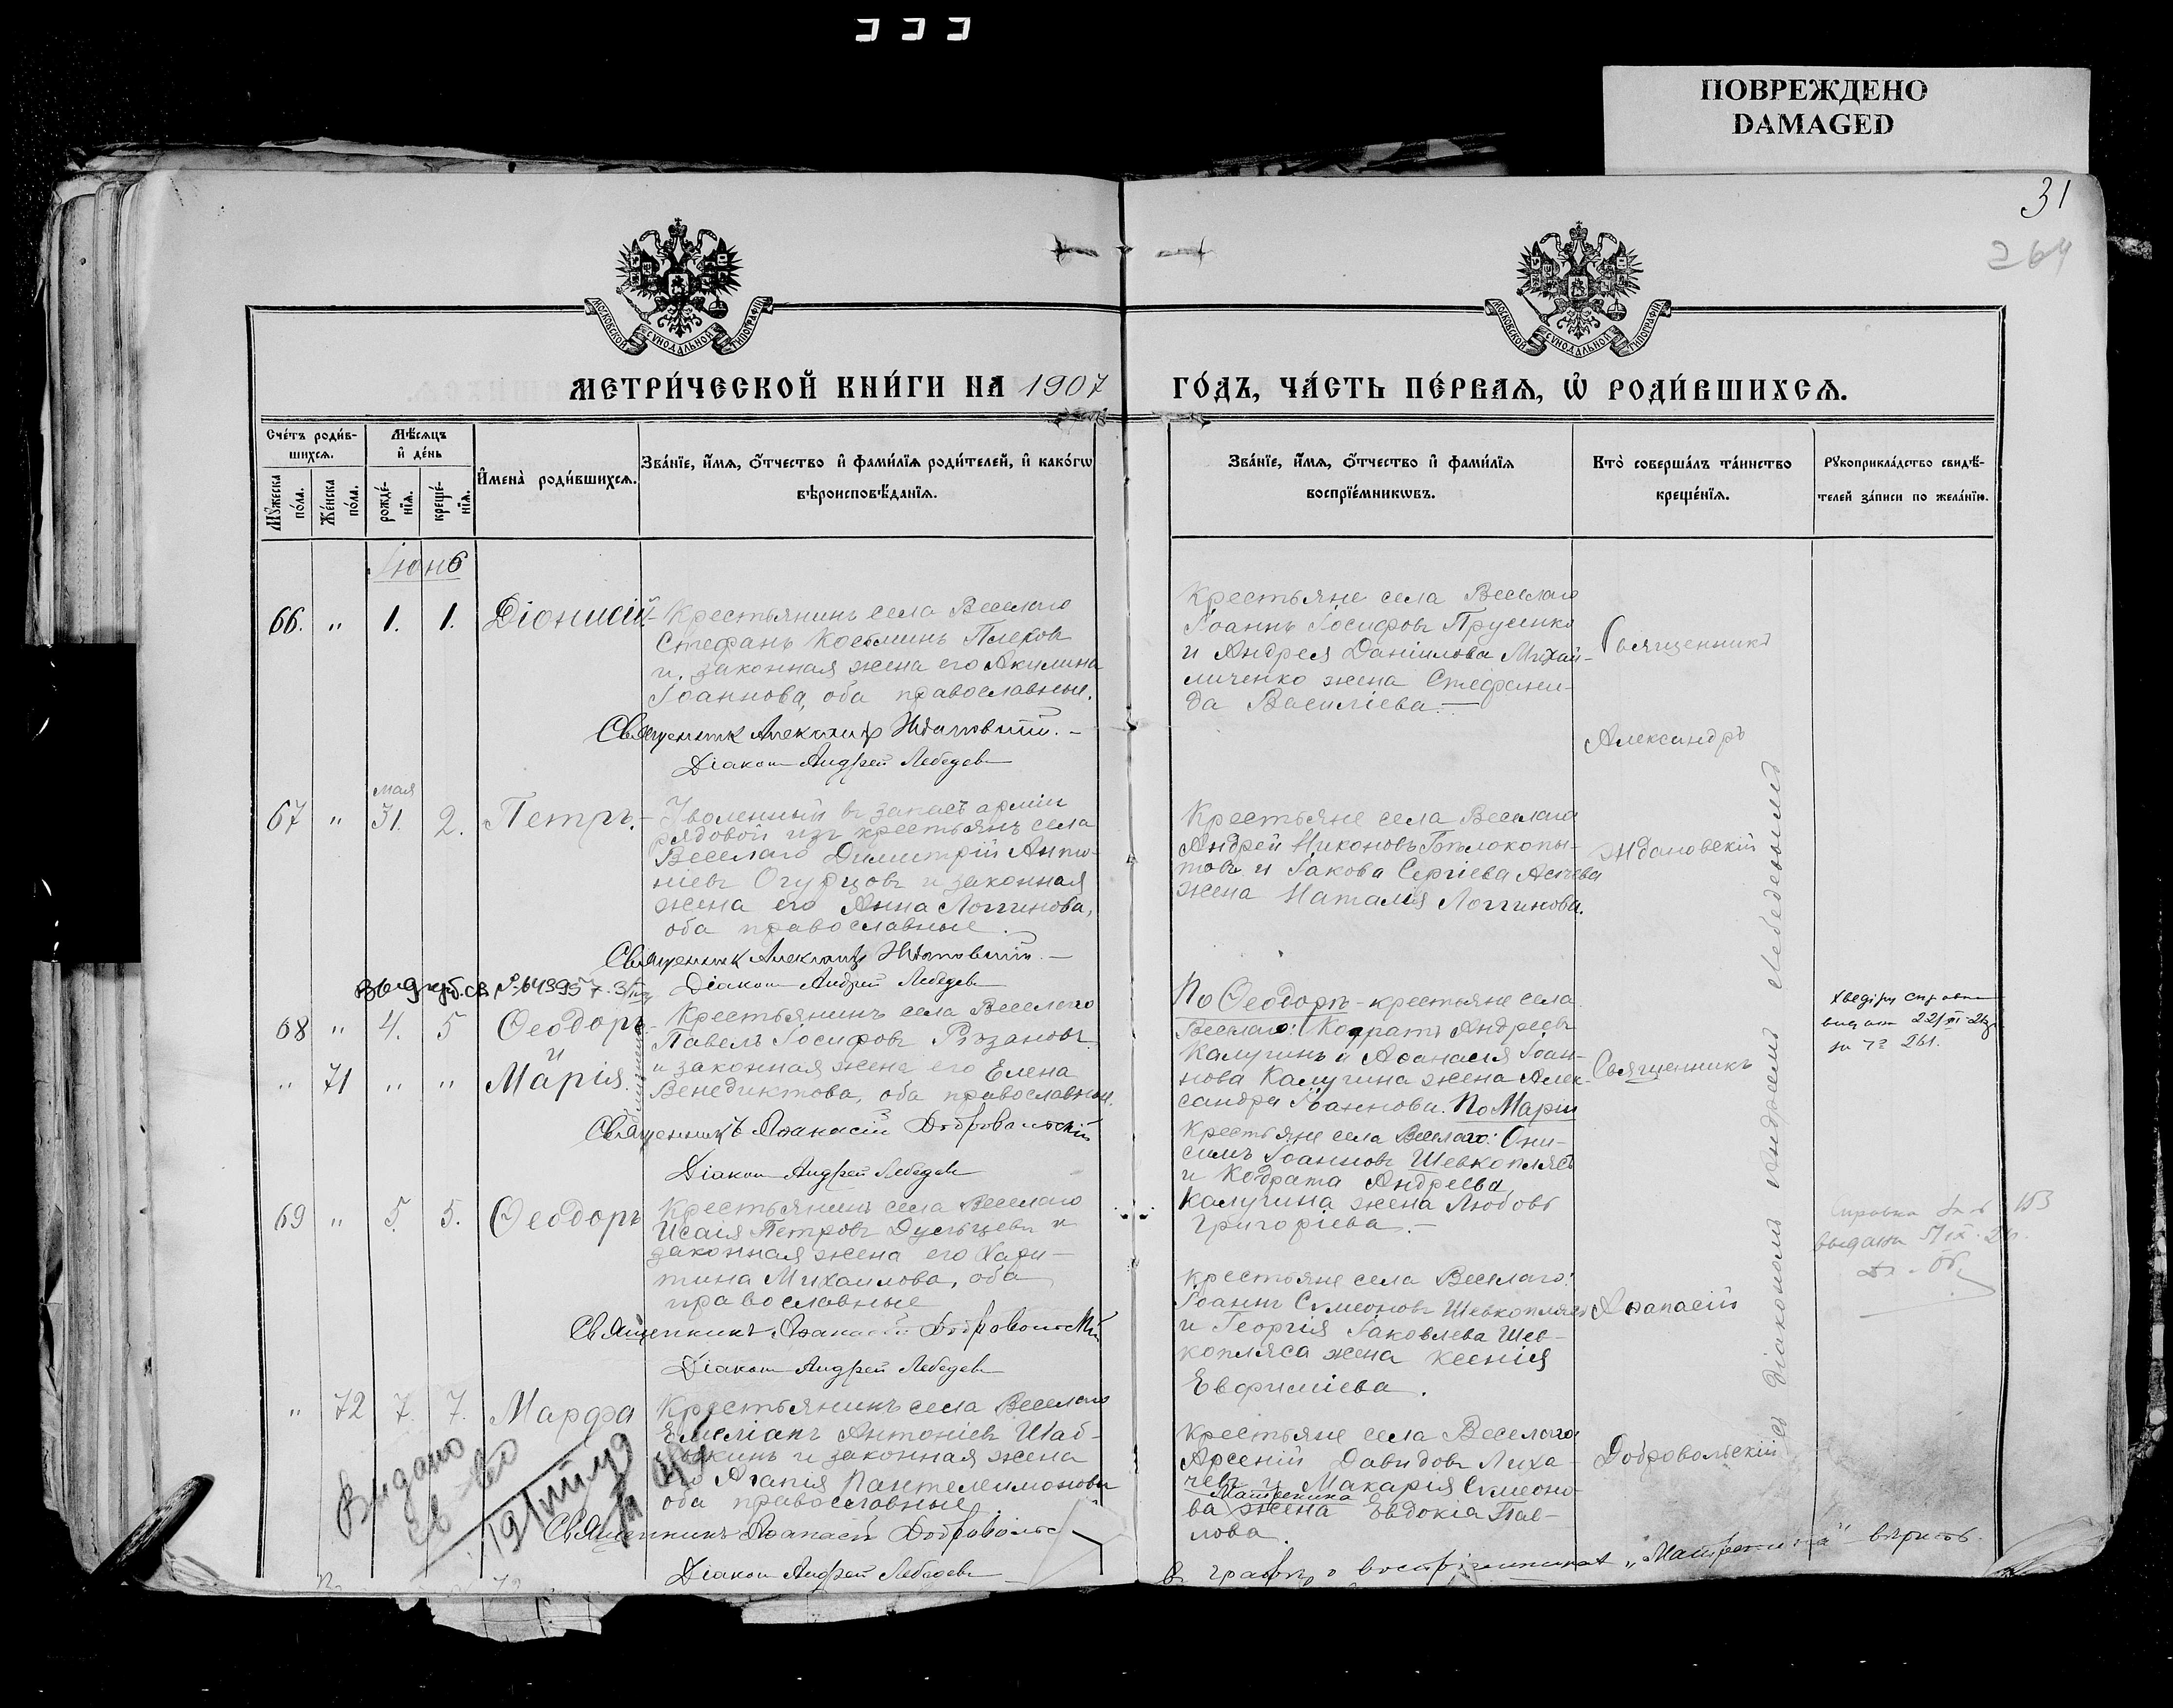 ПОВРЕЖДЕНО
DAMAGED
31
264
МОСКОВСКОЙ СѴНОДАЛЬНОЙ ТИПОГРАФІИ
МОСКОВСКОЙ СѴНОДАЛЬНОЙ ТИПОГРАФІИ
МЕТРИ́ЧЕСКОЙ КНИ́ГИ НА 1907 ГО́ДЪ, ЧА́СТЬ ПЕ́РВАѦ, Ѡ҆ РОДИ́ВШИХСѦ.
Сче́тъ роди́в-
шихсѧ.
Мꙋ́жеска по́ла.
Же́нска по́ла.
Мѣ́сѧцъ
и҆ де́нь
рожде́-
нїѧ.
креще́-
нїѧ.
И҆мена̀ роди́вшихсѧ.
Зва́нїе, и҆́мѧ, ѻ҆́тчество и҆ фами́лїѧ роди́телей, и҆ како́гѡ
вѣроисповѣ́данїѧ.
Зва́нїе, и҆́мѧ, ѻ҆́тчество и҆ фами́лїѧ
воспрїе́мникѡвъ.
Кто̀ соверша́лъ та́инство
креще́нїѧ.
Рꙋкоприкла́дство свидѣ́-
телей за́писи по жела́нїю.
Іюнь
66. " 1. 1. Діонисій-
Крестьянинъ села Веселаго
Стефанъ Косьминъ Плехов
и законная жена его Акилина
Іоаннова, оба православные.
Священник Александр Ждановский.-
Діакон Андрей Лебедев
Крестьяне села Веселаго
Іоаннъ Іосифовъ Прусенко
и Андрея Даніилова Михай-
личенко жена Стефани-
да Василіева.-
Священникъ
Александръ
Ждановскій
мая
67 " 31. 2. Петръ.-
Уволенный въ запасъ арміи
рядовой изъ крестьянъ села
Веселаго Димитрій Анто-
ніевъ Огурцовъ и законная
жена его Анна Логгинова,
оба православные.
Священник Александр Ждановский.-
Діакон Андрей Лебедев
Крестьяне села Веселаго
Андрей Никоновъ Бѣлокопы-
товъ и Іакова Сергіева
жена Наталія Логгинова.
68 " 4. 5 Ѳеодоръ
и
" 71 " " Марія.
Крестьянинъ села Веселаго
Павелъ Іосифовъ Рѣзановъ
и законная жена его Елена
Венедиктова, оба православные.
Священникъ Аѳанасій Добровольскій
Діакон Андрей Лебедев
По Ѳеодорѣ-крестьяне села
Веселаго: Кодратъ Андреевъ
Калугинъ и Аѳанасія Іоан-
нова Калугина жена Алек-
сандра Іоаннова. По Маріи
крестьяне села Веселаго: Они-
симъ Іоанновъ Шевкоплясъ
и Кодрата Андреева
Калугина жена Любовь
Григоріева.-
Священникъ
Аѳанасій
Добровольскій
съ Діакономъ Андреемъ Лебедевымъ
за № 261.
69 " 5. 5. Ѳеодоръ
Крестьянинъ села Веселаго
Исаія Петровъ и
законная жена его Хари-
тина Михаилова, оба
православные
Священникъ Аѳанасій Добровольскій
Діакон Андрей Лебедев
крестьяне села Веселаго:
Іоаннъ Сѵмеоновъ Шевкоплясъ
и Георгія Іаковлева Шев-
копляса жена Ксенія
Евфиміева.
Справка 153
выдана
" 72 7. 7. Марфа
Крестьянинъ села Веселаго
Емеліанъ Антоніевъ
и законная жена
его Агапія Пантелеимонова
оба православные.
Священникъ Аѳанасій
Діакон Андрей Лебедев
Крестьяне села Веселаго
Арсеній Давидовъ Лиха-
чевъ и Макарія Сѵмеоно-
ва жена Евдокія Пав-
лова.
Видано
св-во